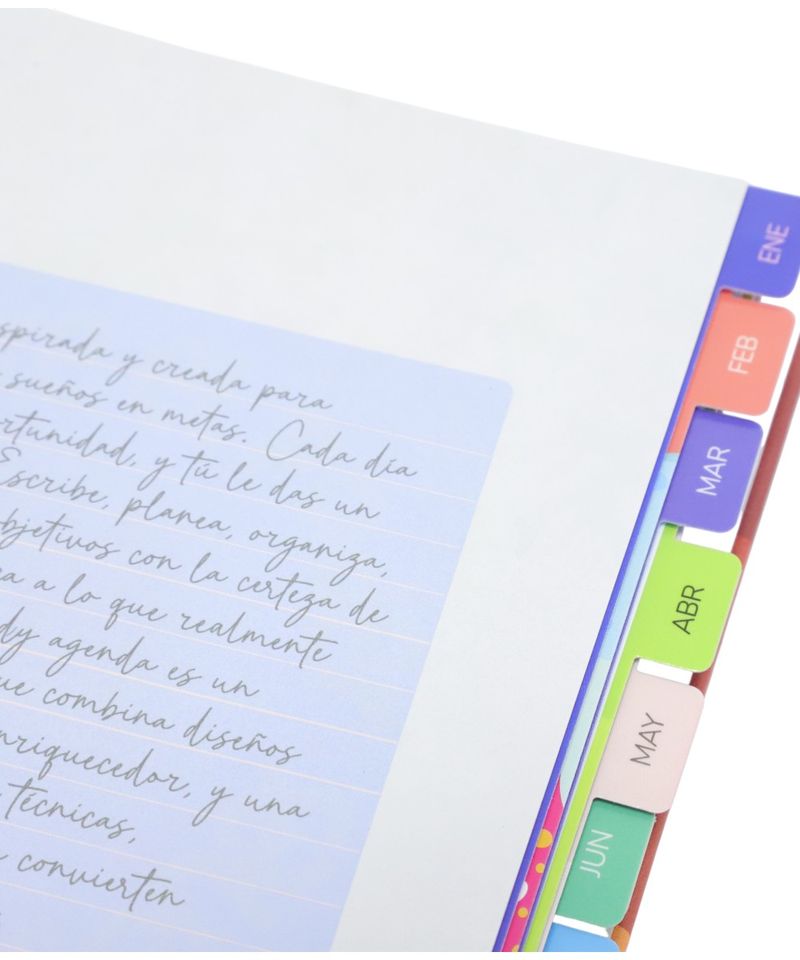 spirada y creada para
sueños en metas. Cada día
rtunidad, y tú le das un
Escribe, planea, organiza,
bjetivos con la certeza de
a a lo que realmente
dy agenda es un
ue combina diseños
nriquecedor, y una
técnicas,
convierten
ENE
FEB
MAR
ABR
MAY
JUN